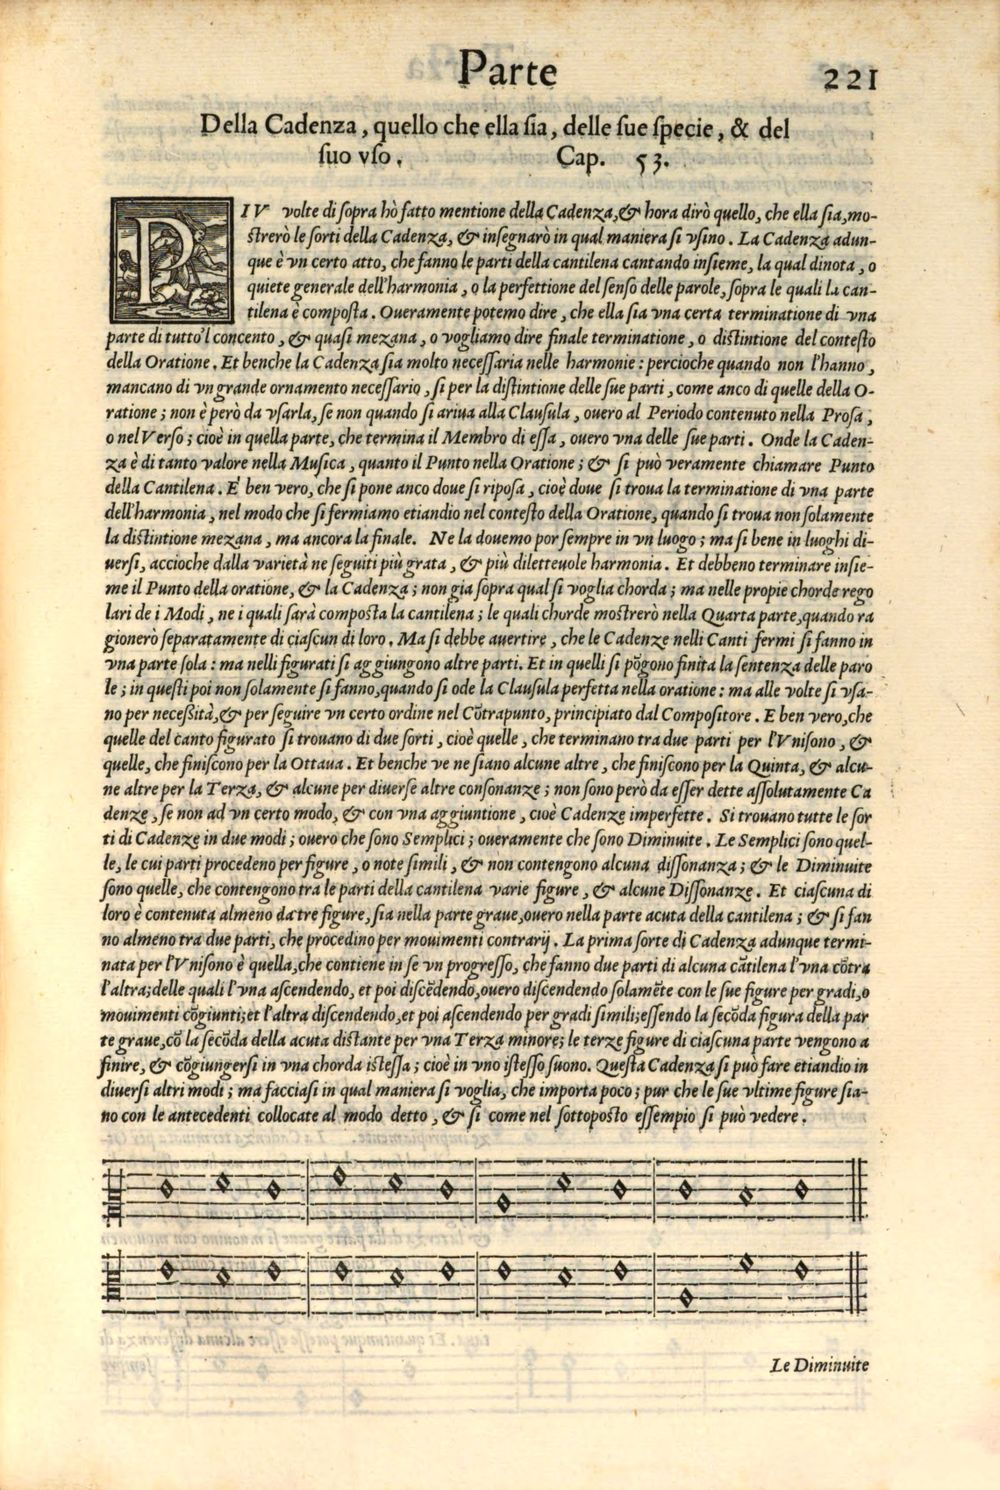 Parte
221
Della Cadenza, quello che ella ſia, delle ſue ſpecie, & del
ſuo vſo. Cap. 53.
PIV volte di ſopra hò fatto mentione della Cadenza, & hora dirò quello, che ella ſia, mo-
ſtrerò le ſorti della Cadenza, & inſegnarò in qual maniera ſi vſino. La Cadenza adun-
que è vn certo atto, che fanno le parti della cantilena cantando inſieme, la qual dinota, o
quiete generale dell'harmonia, o la perfettione del ſenſo delle parole, ſopra le quali la can-
tilena è compoſta. Oueramente potemo dire, che ella ſia vna certa terminatione di vna
parte di tutto'l concento, & quaſi mezana, o vogliamo dire finale terminatione, o diſtintione del conteſto
della Oratione. Et benche la Cadenza ſia molto neceſſaria nelle harmonie: percioche quando non l'hanno,
mancano di vn grande ornamento neceſſario, ſi per la diſtintione delle ſue parti, come anco di quelle della O-
ratione; non è però da vſarla, ſe non quando ſi ariua alla Clauſula, ouero al Periodo contenuto nella Proſa,
o nel Verſo; cioè in quella parte, che termina il Membro di eſſa, ouero vna delle ſue parti. Onde la Caden-
za è di tanto valore nella Muſica, quanto il Punto nella Oratione; & ſi può veramente chiamare Punto
della Cantilena. E ben vero, che ſi pone anco doue ſi ripoſa, cioè doue ſi troua la terminatione di vna parte
dell'harmonia, nel modo che ſi fermiamo etiandio nel conteſto della Oratione, quando ſi troua non ſolamente
la diſtintione mezana, ma ancora la finale. Ne la douemo por ſempre in vn luogo; ma ſi bene in luoghi di-
uerſi, accioche dalla varietà ne ſeguiti più grata, & più diletteuole harmonia. Et debbeno terminare inſie-
me il Punto della oratione, & la Cadenza; non gia ſopra qual ſi voglia chorda; ma nelle propie chorde rego
lari de i Modi, ne i quali ſarà compoſta la cantilena; le quali chorde moſtrerò nella Quarta parte, quando ra
gionerò ſeparatamente di ciaſcun di loro. Ma ſi debbe auertire, che le Cadenze nelli Canti fermi ſi fanno in
vna parte ſola: ma nelli figurati ſi aggiungono altre parti. Et in quelli ſi põgono finita la ſentenza delle paro
le; in queſti poi non ſolamente ſi fanno, quando ſi ode la Clauſula perfetta nella oratione: ma alle volte ſi vſa-
no per neceſſità, & per ſeguire vn certo ordine nel Cõtrapunto, principiato dal Compoſitore. E ben vero, che
quelle del canto figurato ſi trouano di due ſorti, cioè quelle, che terminano tra due parti per l'Vniſono, &
quelle, che finiſcono per la Ottaua. Et benche ve ne ſiano alcune altre, che finiſcono per la Quinta, & alcu-
ne altre per la Terza, & alcune per diuerſe altre conſonanze; non ſono però da eſſer dette aſſolutamente Ca
denze, ſe non ad vn certo modo, & con vna aggiuntione, cioè Cadenze imperfette. Si trouano tutte le ſor
ti di Cadenze in due modi; ouero che ſono Semplici; oueramente che ſono Diminuite. Le Semplici ſono quel-
le, le cui parti procedeno per figure, o note ſimili, & non contengono alcuna diſſonanza; & le Diminuite
ſono quelle, che contengono tra le parti della cantilena varie figure, & alcune Diſſonanze. Et ciaſcuna di
loro è contenuta almeno da tre figure, ſia nella parte graue, ouero nella parte acuta della cantilena; & ſi fan
no almeno tra due parti, che procedino per mouimenti contrarij. La prima ſorte di Cadenza adunque termi-
nata per l'Vniſono è quella, che contiene in ſe vn progreſſo, che fanno due parti di alcuna cãtilena l'vna cõtra
l'altra; delle quali l'vna aſcendendo, et poi diſcẽdendo, ouero diſcendendo ſolamẽte con le ſue figure per gradi, o
mouimenti cõgiunti; et l'altra diſcendendo, et poi aſcendendo per gradi ſimili; eſſendo la ſecõda figura della par
te graue, cõ la ſecõda della acuta diſtante per vna Terza minore; le terze figure di ciaſcuna parte vengono a
finire, & cõgiungerſi in vna chorda iſteſſa; cioè in vno iſteſſo ſuono. Queſta Cadenza ſi può fare etiandio in
diuerſi altri modi; ma facciaſi in qual maniera ſi voglia, che importa poco; pur che le ſue vltime figure ſia-
no con le antecedenti collocate al modo detto, & ſi come nel ſottopoſto eſſempio ſi può vedere.
Le Diminuite